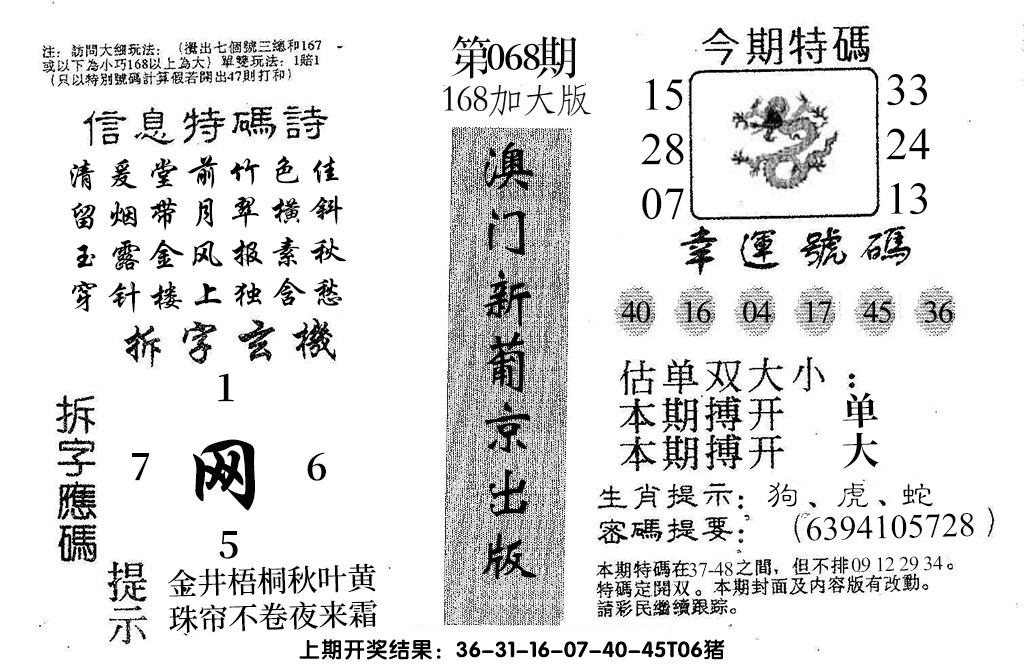 注：訪問大细玩法：（攪出七個號三總和167
或以下為小巧168以上為大）單雙玩法：1賠1
（只以特別號碼計算假若開出47則打和）
信息特碼詩
清爰堂前竹色佳
留烟带月翠横斜
玉露金风报素秋
穿针楼上独含愁
拆字玄機
拆字應碼
1
7 网 6
5
提示
金井梧桐秋叶黄
珠帘不卷夜来霜
第068期
168加大版
澳门新葡京出版
今期特碼
15 33
28 24
07 13
幸運號碼
40 16 04 17 45 36
估单双大小：
本期搏开 单
本期搏开 大
生肖提示：狗、虎、蛇
密碼提要：（6394105728）
本期特碼在37-48之間，但不排09 12 29 34。
特碼定開双。本期封面及内容版有改動。
請彩民繼續跟踪。
上期开奖结果：36-31-16-07-40-45T06猪